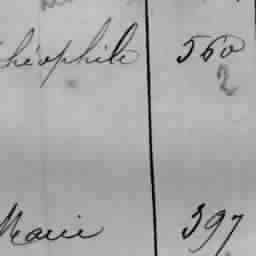 Théophile 560
2
Marie 397